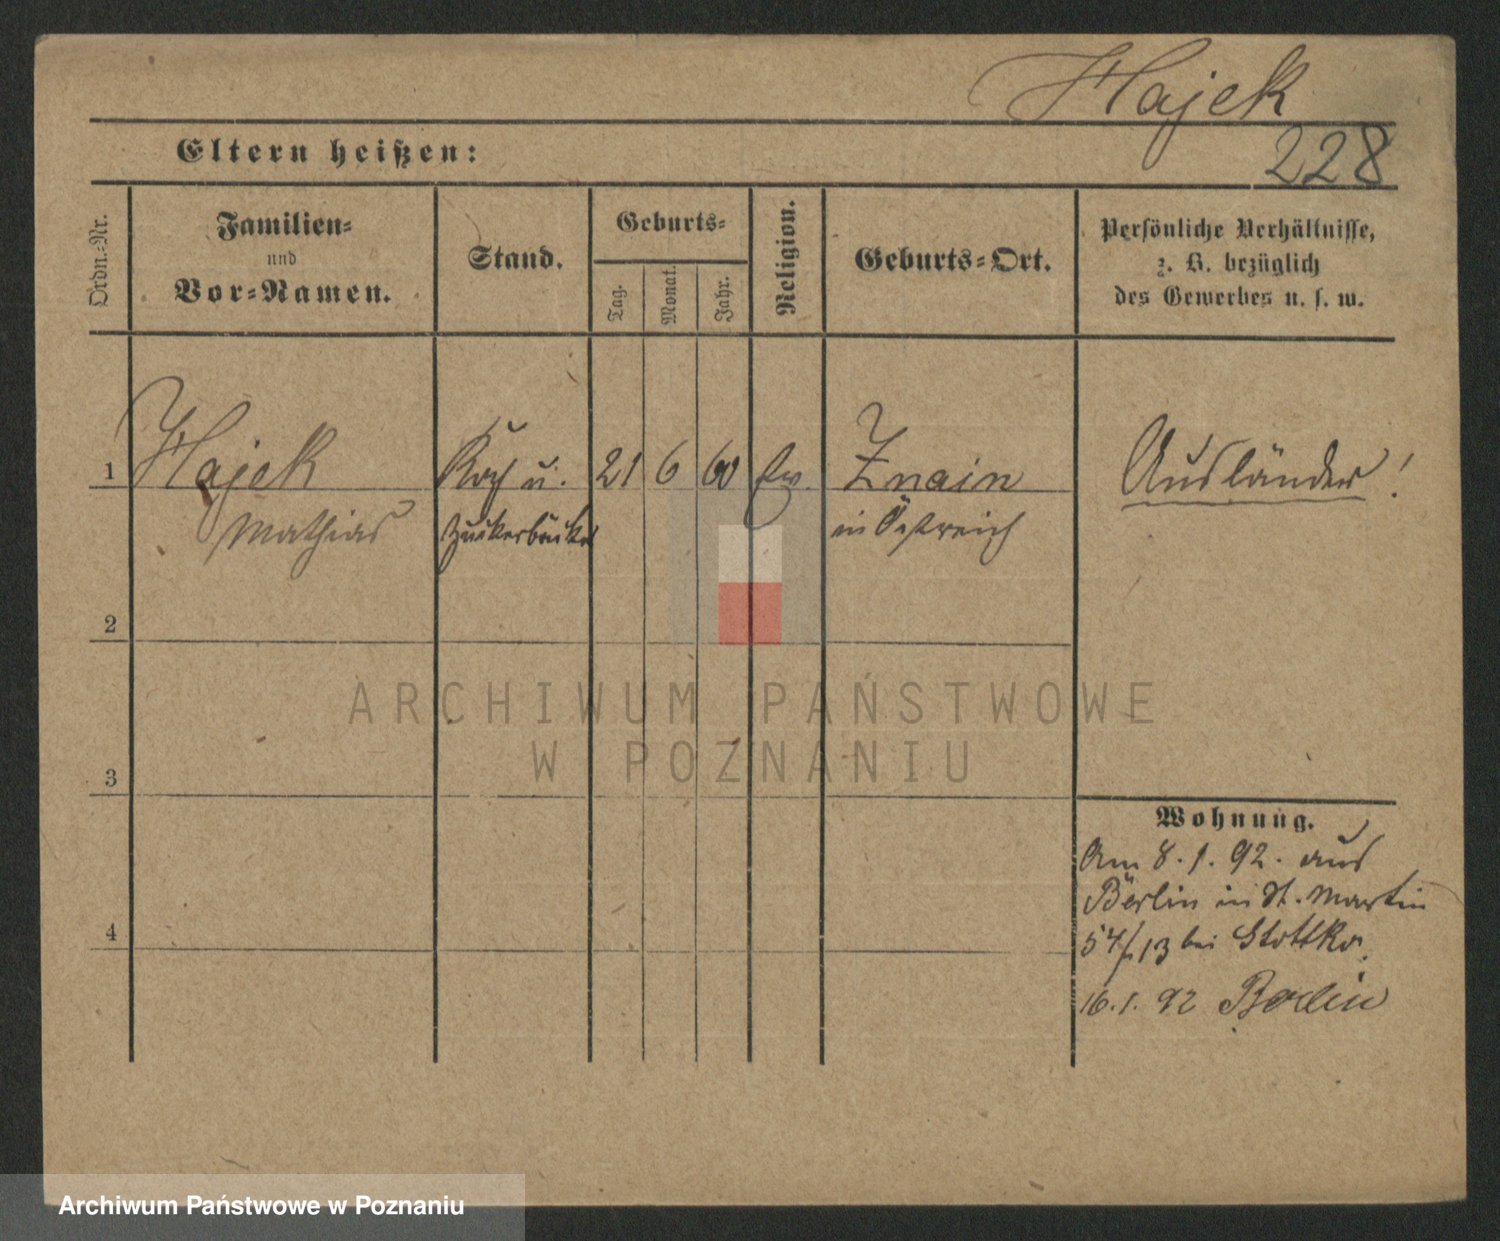 Hajek
Eltern heißen:
228
Ordn.-Nr.
Familien-
und
Vor-Namen.
Stand.
Geburts-
Tag.
Monat.
Jahr.
Religion.
Geburts-Ort.
Persönliche Verhältnisse,
z. B. bezüglich
des Gewerbes u. s. w.
1 Hajek Koch u. 21 6 60 Znain Ausländer!
Mathias Zuckerbäcker in Östreich
2
ARCHIWUM PAŃSTWOWE
W POZNANIU
3
Wohnung.
Am 8. 1. 92. aus
Berlin in St. Martin
4
54/13 bei
16. 1. 92 Berlin
Archiwum Państwowe w Poznaniu